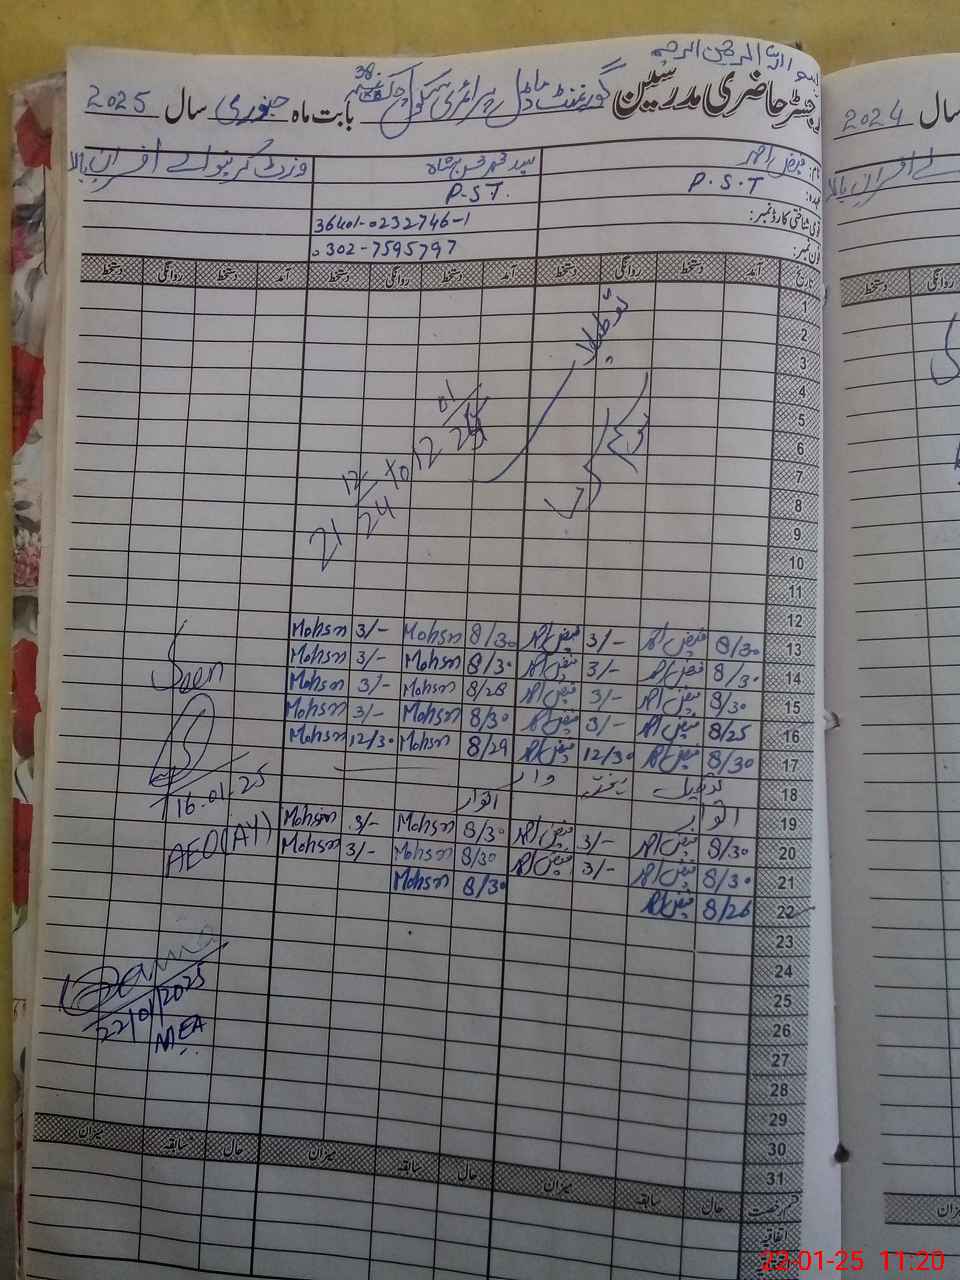 بسم اللہ الرحمن الرحیم
رجسٹر حاضری مدرسین گورنمنٹ ماڈل پرائمری سکول چک نمبر 38 بابت ماہ جنوری سال 2025
نام: فیض احمد
عہدہ: P.S.T P.S.T.
قومی شناختی کارڈ نمبر: 36401-0232746-1
فون نمبر: 0302-7595797
تاریخ آمد دستخط روانگی دستخط آمد دستخط روانگی دستخط آمد دستخط روانگی دستخط
1
2
3
4
5
6
7
8
9
10
11
12
21 12/24 to 12 01/25
13 8/30 فیض احمد 3/- فیض احمد 8/30 Mohsn 3/- Mohsn
14 8/30 فیض احمد 3/- فیض احمد 8/30 Mohsn 3/- Mohsn
15 8/30 فیض احمد 3/- فیض احمد 8/28 Mohsn 3/- Mohsn
16 8/25 فیض احمد 3/- فیض احمد 8/30 Mohsn 3/- Mohsn
17 8/30 فیض احمد 12/30 فیض احمد 8/29 Mohsn 12/30 Mohsn
18 تعطیل ہفتہ وار
19 اتوار اتوار
20 8/30 فیض احمد 3/- فیض احمد 8/30 Mohsn 3/- Mohsn
21 8/30 فیض احمد 3/- فیض احمد 8/30 Mohsn 3/- Mohsn
22 8/26 فیض احمد 8/30 Mohsn
23
24
25
26
27
28
29
30
31
Seen
16-01-25
AEO(AY)
22/01/2025
MEA
قسم رخصت حال سابقہ میزان حال سابقہ میزان حال سابقہ میزان
اتفاقیہ
سال 2024
روانگی دستخط
میزان
22-01-25 11:20